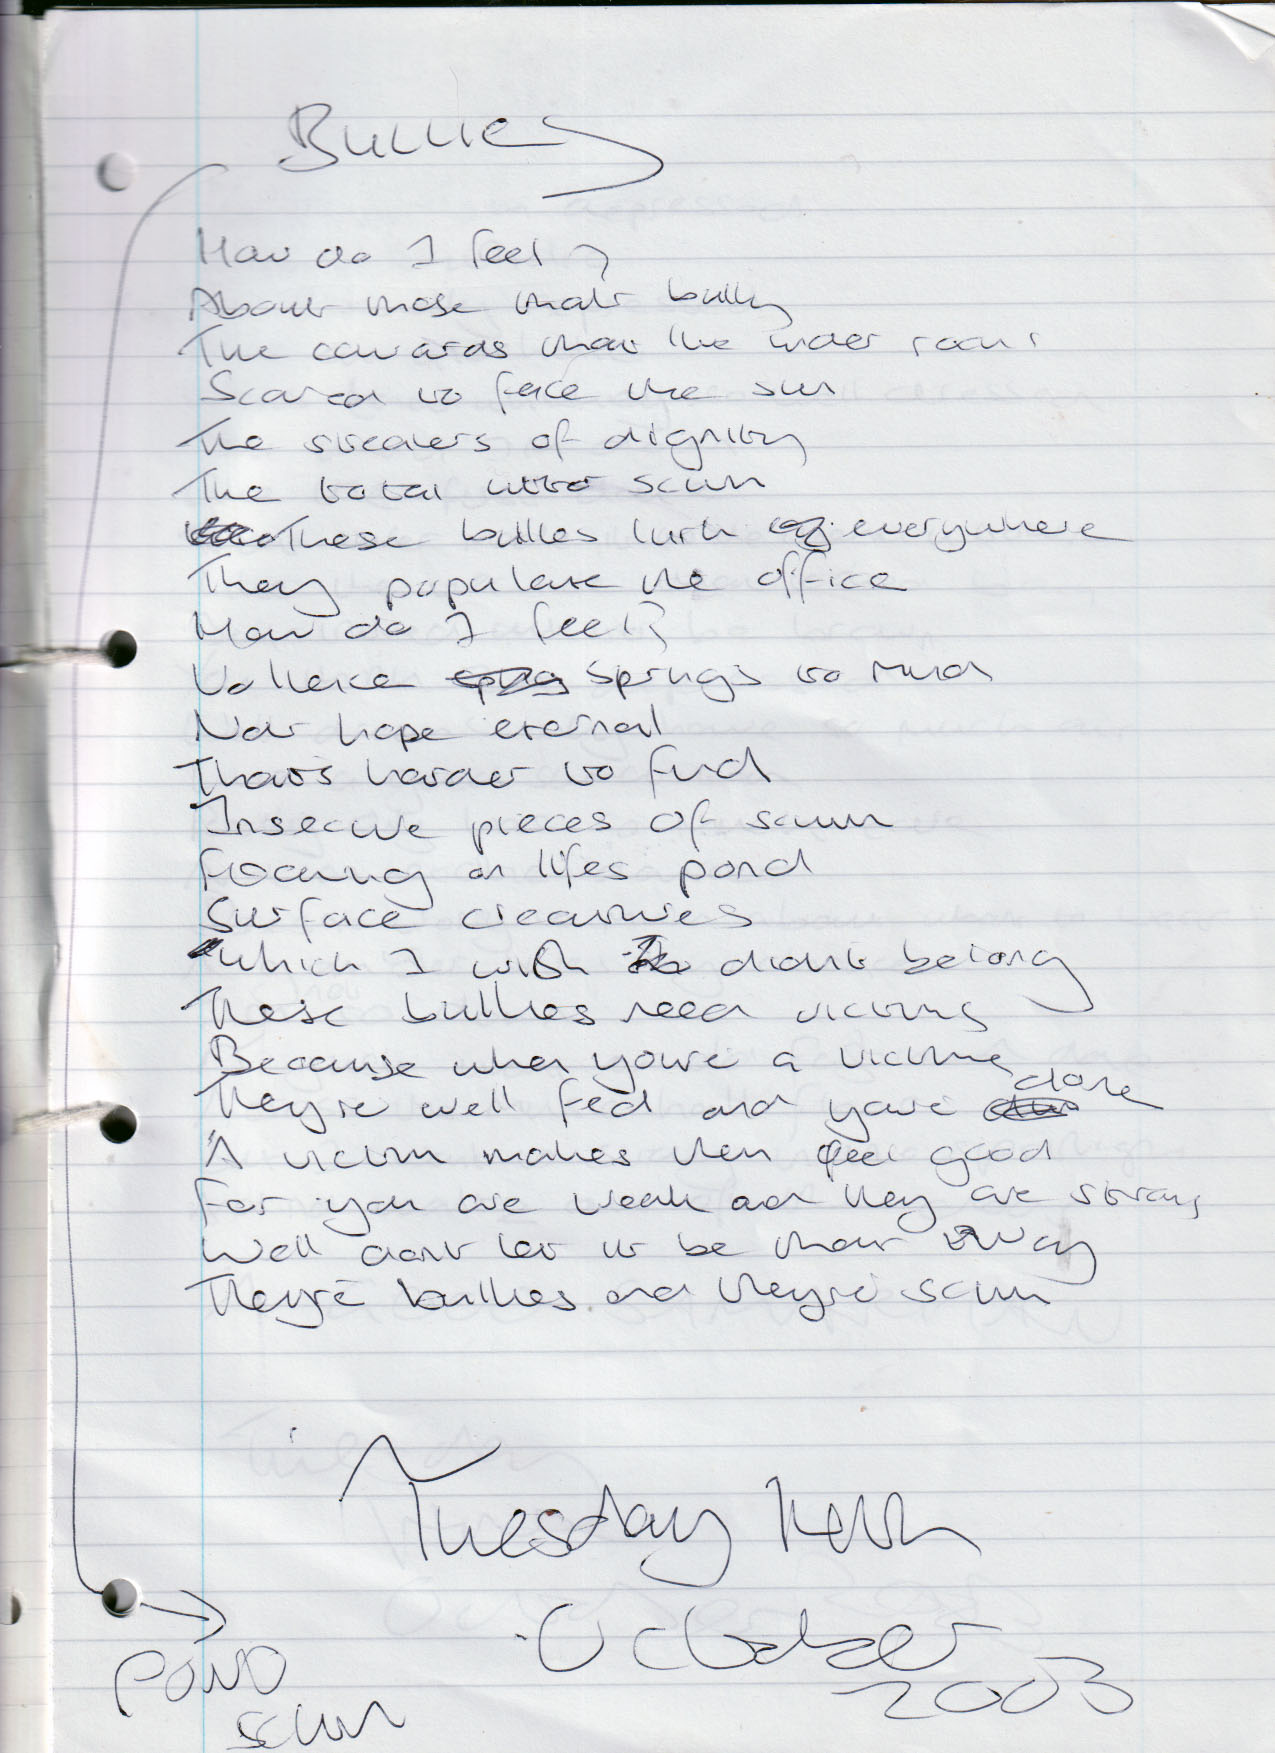 Bullies
How do I feel?
About those that bully
The cowards that live under rocks
Scared to face the sun
The stealers of dignity
The total utter scum
These bullies lurk everywhere
They populate the office
How do I feel?
Vollence springs to mind
Not hope eternal
That's harder to find
Insecure pieces of scum
Floating on lifes pond
Surface creatures
which I wish didn't belong
These bullies need victims
Because when you're a victim
They're well fed and you're done
A victim makes them feel good
For you are weak and they are strong
Well don't let it be that way
They're bullies and they're scum
Tuesday
October
2003
POND
SCUM